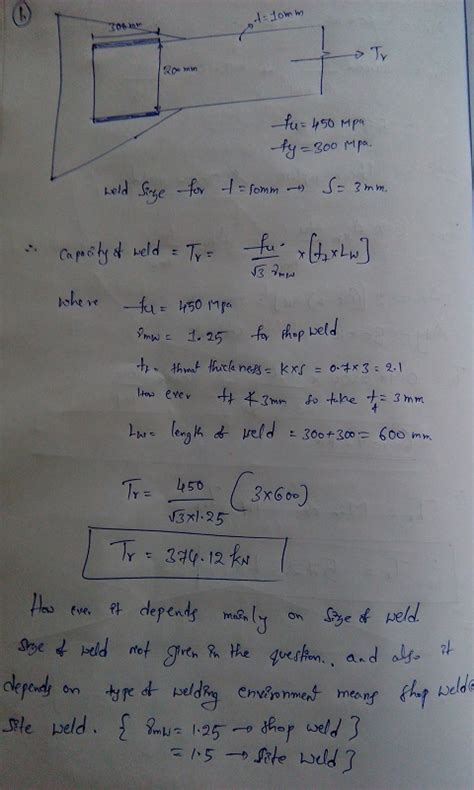 h
300 mm
t=10mm
200 mm
Tr
fu = 450 Mpa
fy = 300 Mpa.
weld size for t=10mm → S= 3mm.
∴ Capacity of weld = Tr = fu / √3 γmw × [tt × Lw]
where fu = 450 Mpa
γmw = 1.25 for shop weld
tt = throat thickness = K×S = 0.7×3 = 2.1
How ever tt ≮ 3mm so take tt = 3mm
Lw = length of weld = 300+300 = 600 mm
Tr = 450 / √3×1.25 (3×600)
Tr = 374.12 kN
How ever it depends mainly on size of weld.
size of weld not given in the question.. and also it
depends on type of welding environment means shop weld
site weld. { γmw = 1.25 → shop weld }
= 1.5 → site weld }